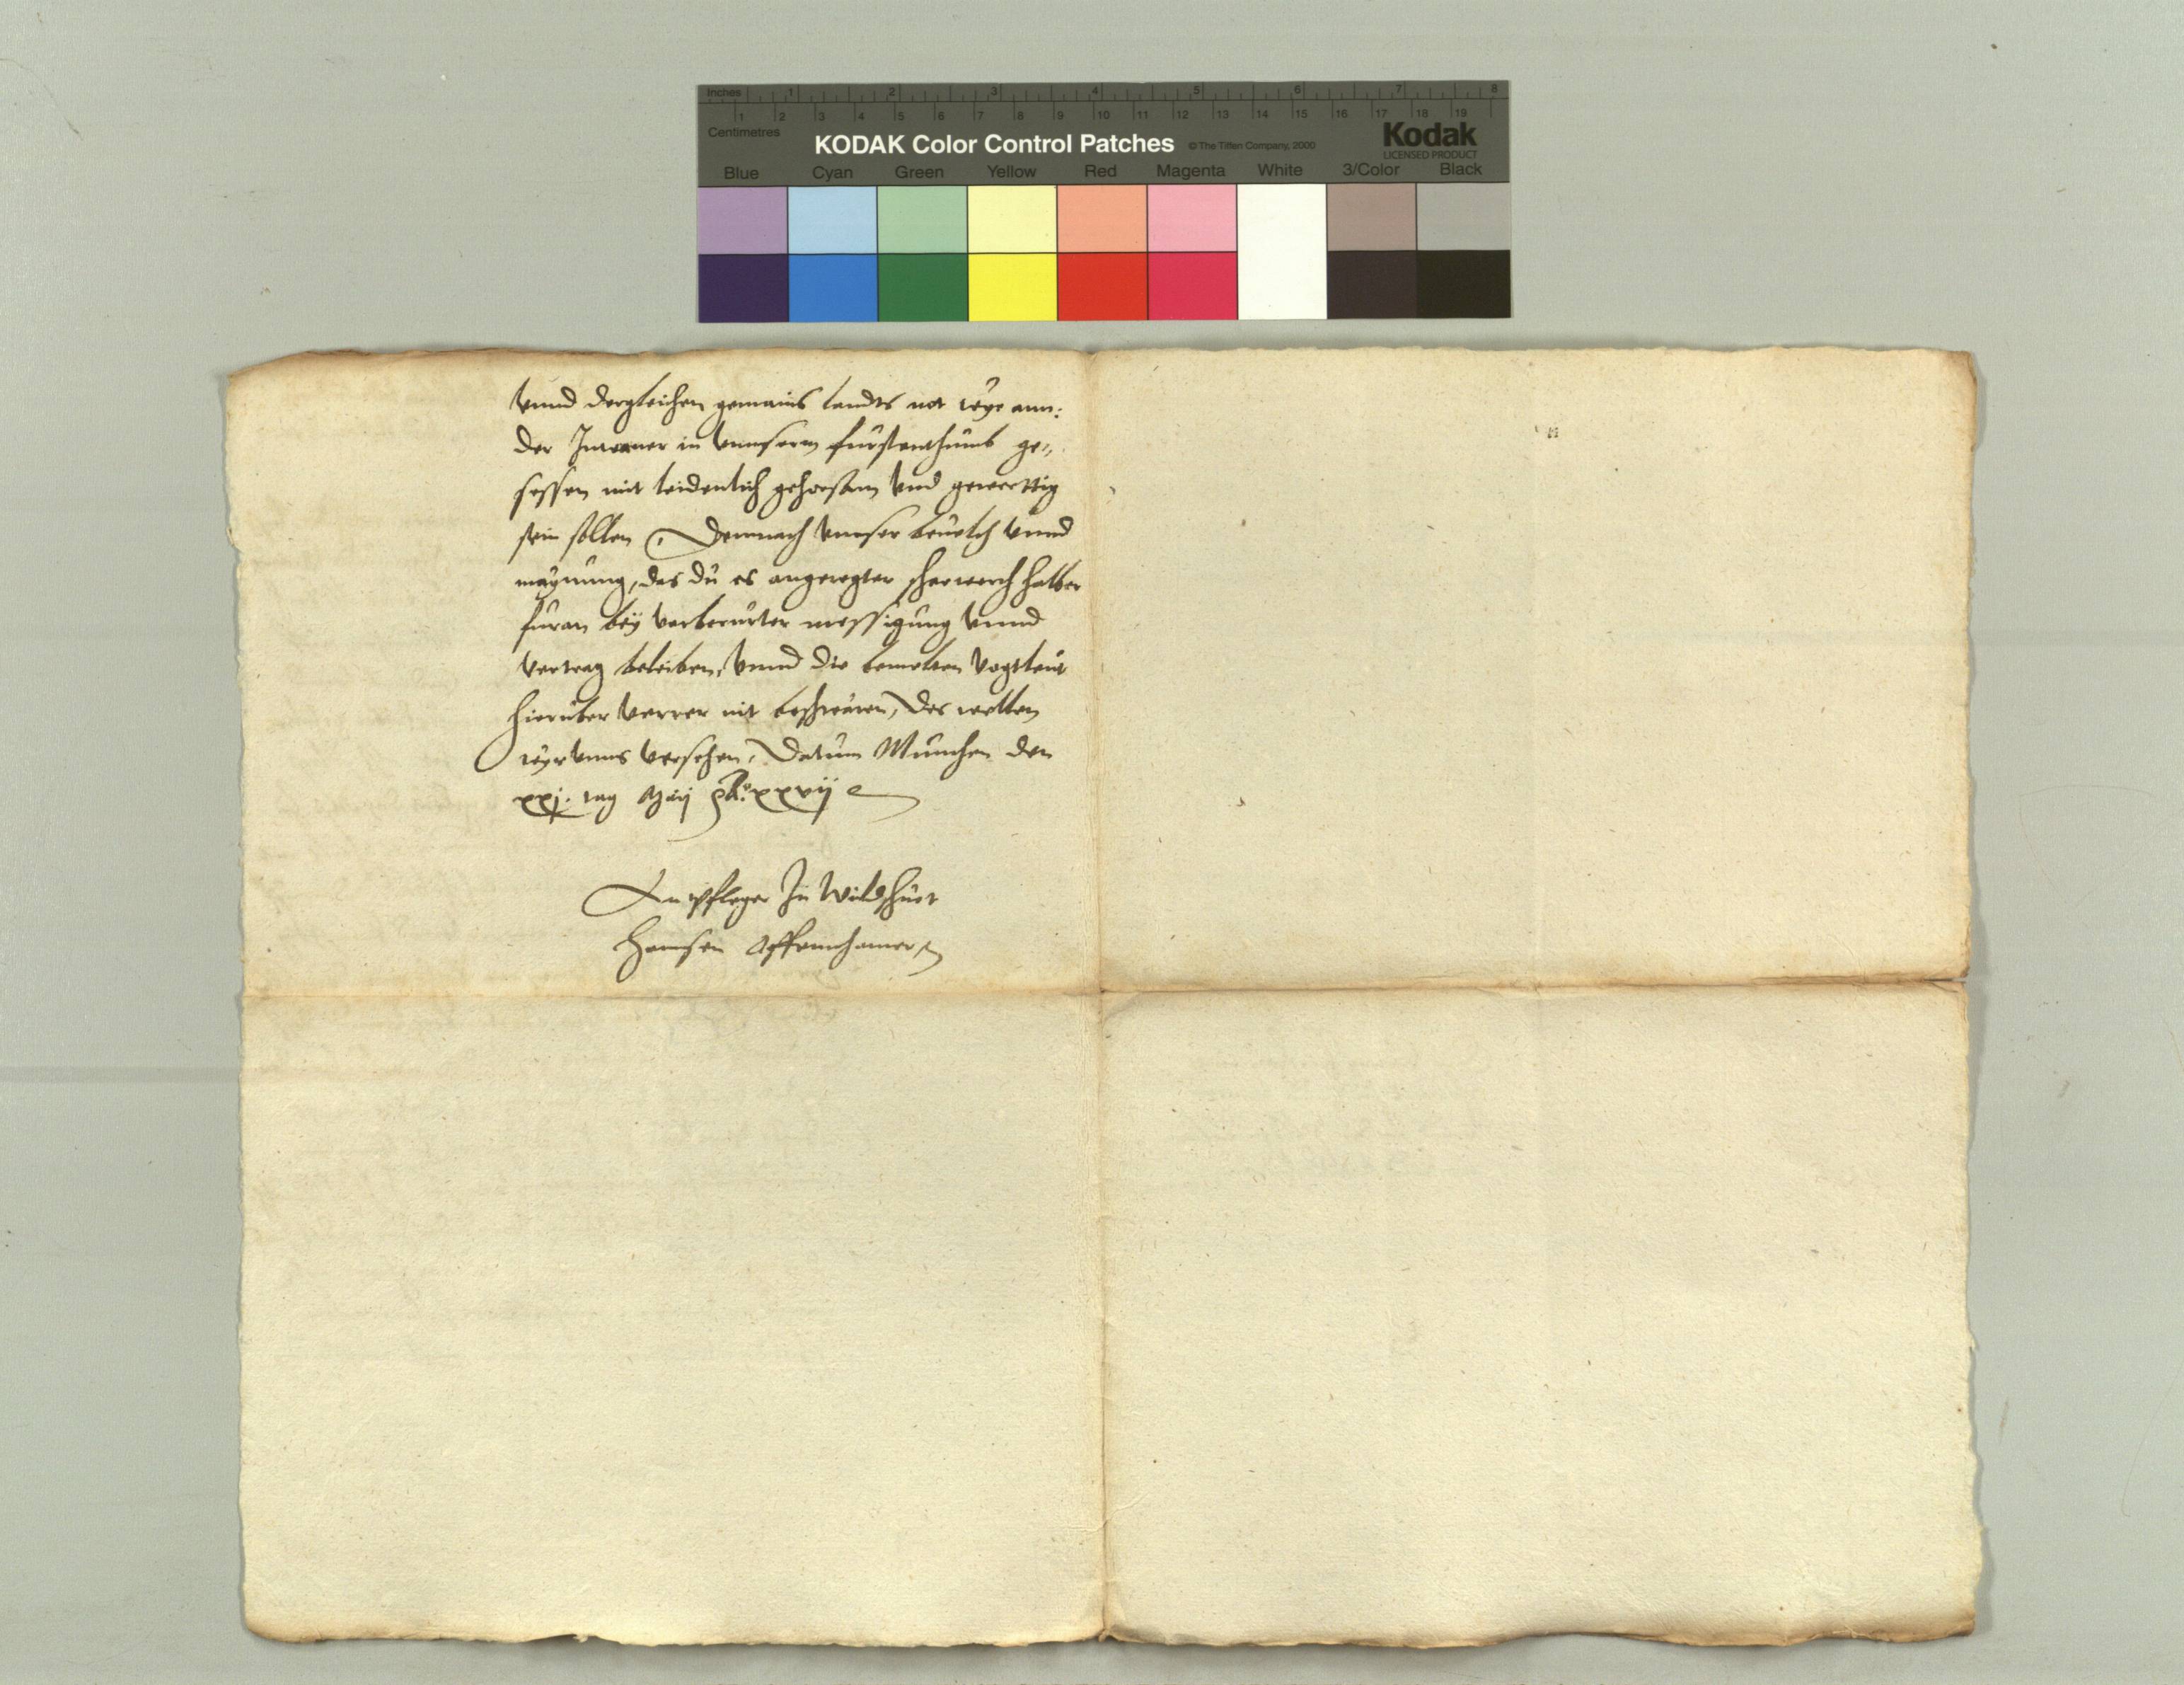 Inches 1 2 3 4 5 6 7 8
1 2 3 4 5 6 7 8 9 10 11 12 13 14 15 16 17 18 19
Centimetres
KODAK Color Control Patches © The Tiffen Company, 2000 Kodak
LICENSED PRODUCT
Blue Cyan Green Yellow Red Magenta White 3/Color Black
vnnd dergleichen gemains landts not wye ann:
der Inwoner in vnnserm furstenthumb ge=
sessen mit leidenlich gehorsam vnd gewerttig
sein sollen, Demnach vnnser beuelch vnnd
maynung, das du es angeregter scharwerch halber
furan bey vorberurter messigung vnnd
vertrag beleiben, vnnd die bemelten vogtleut
hieruber verrer nit beschwären, des wellen
wyr vnns versehen, Datum München den
xxj. tag Maij xxvij
An pfleger zu Wildshuet
Hannsen Offenhamer